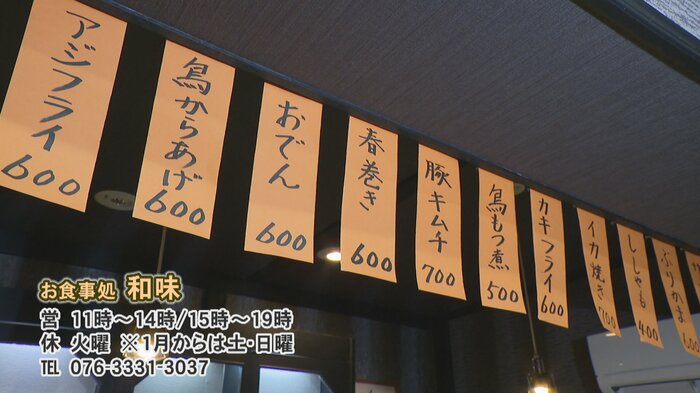 アジフライ
600
鳥からあげ
600
おでん
600
春巻き
600
豚キムチ
700
鳥もつ煮
500
カキフライ
600
イカ焼き
700
ししゃも
400
ぶりかま
600
お食事処 和味
営 11時～14時/15時～19時
休 火曜 ※1月からは土・日曜
℡ 076-3331-3037